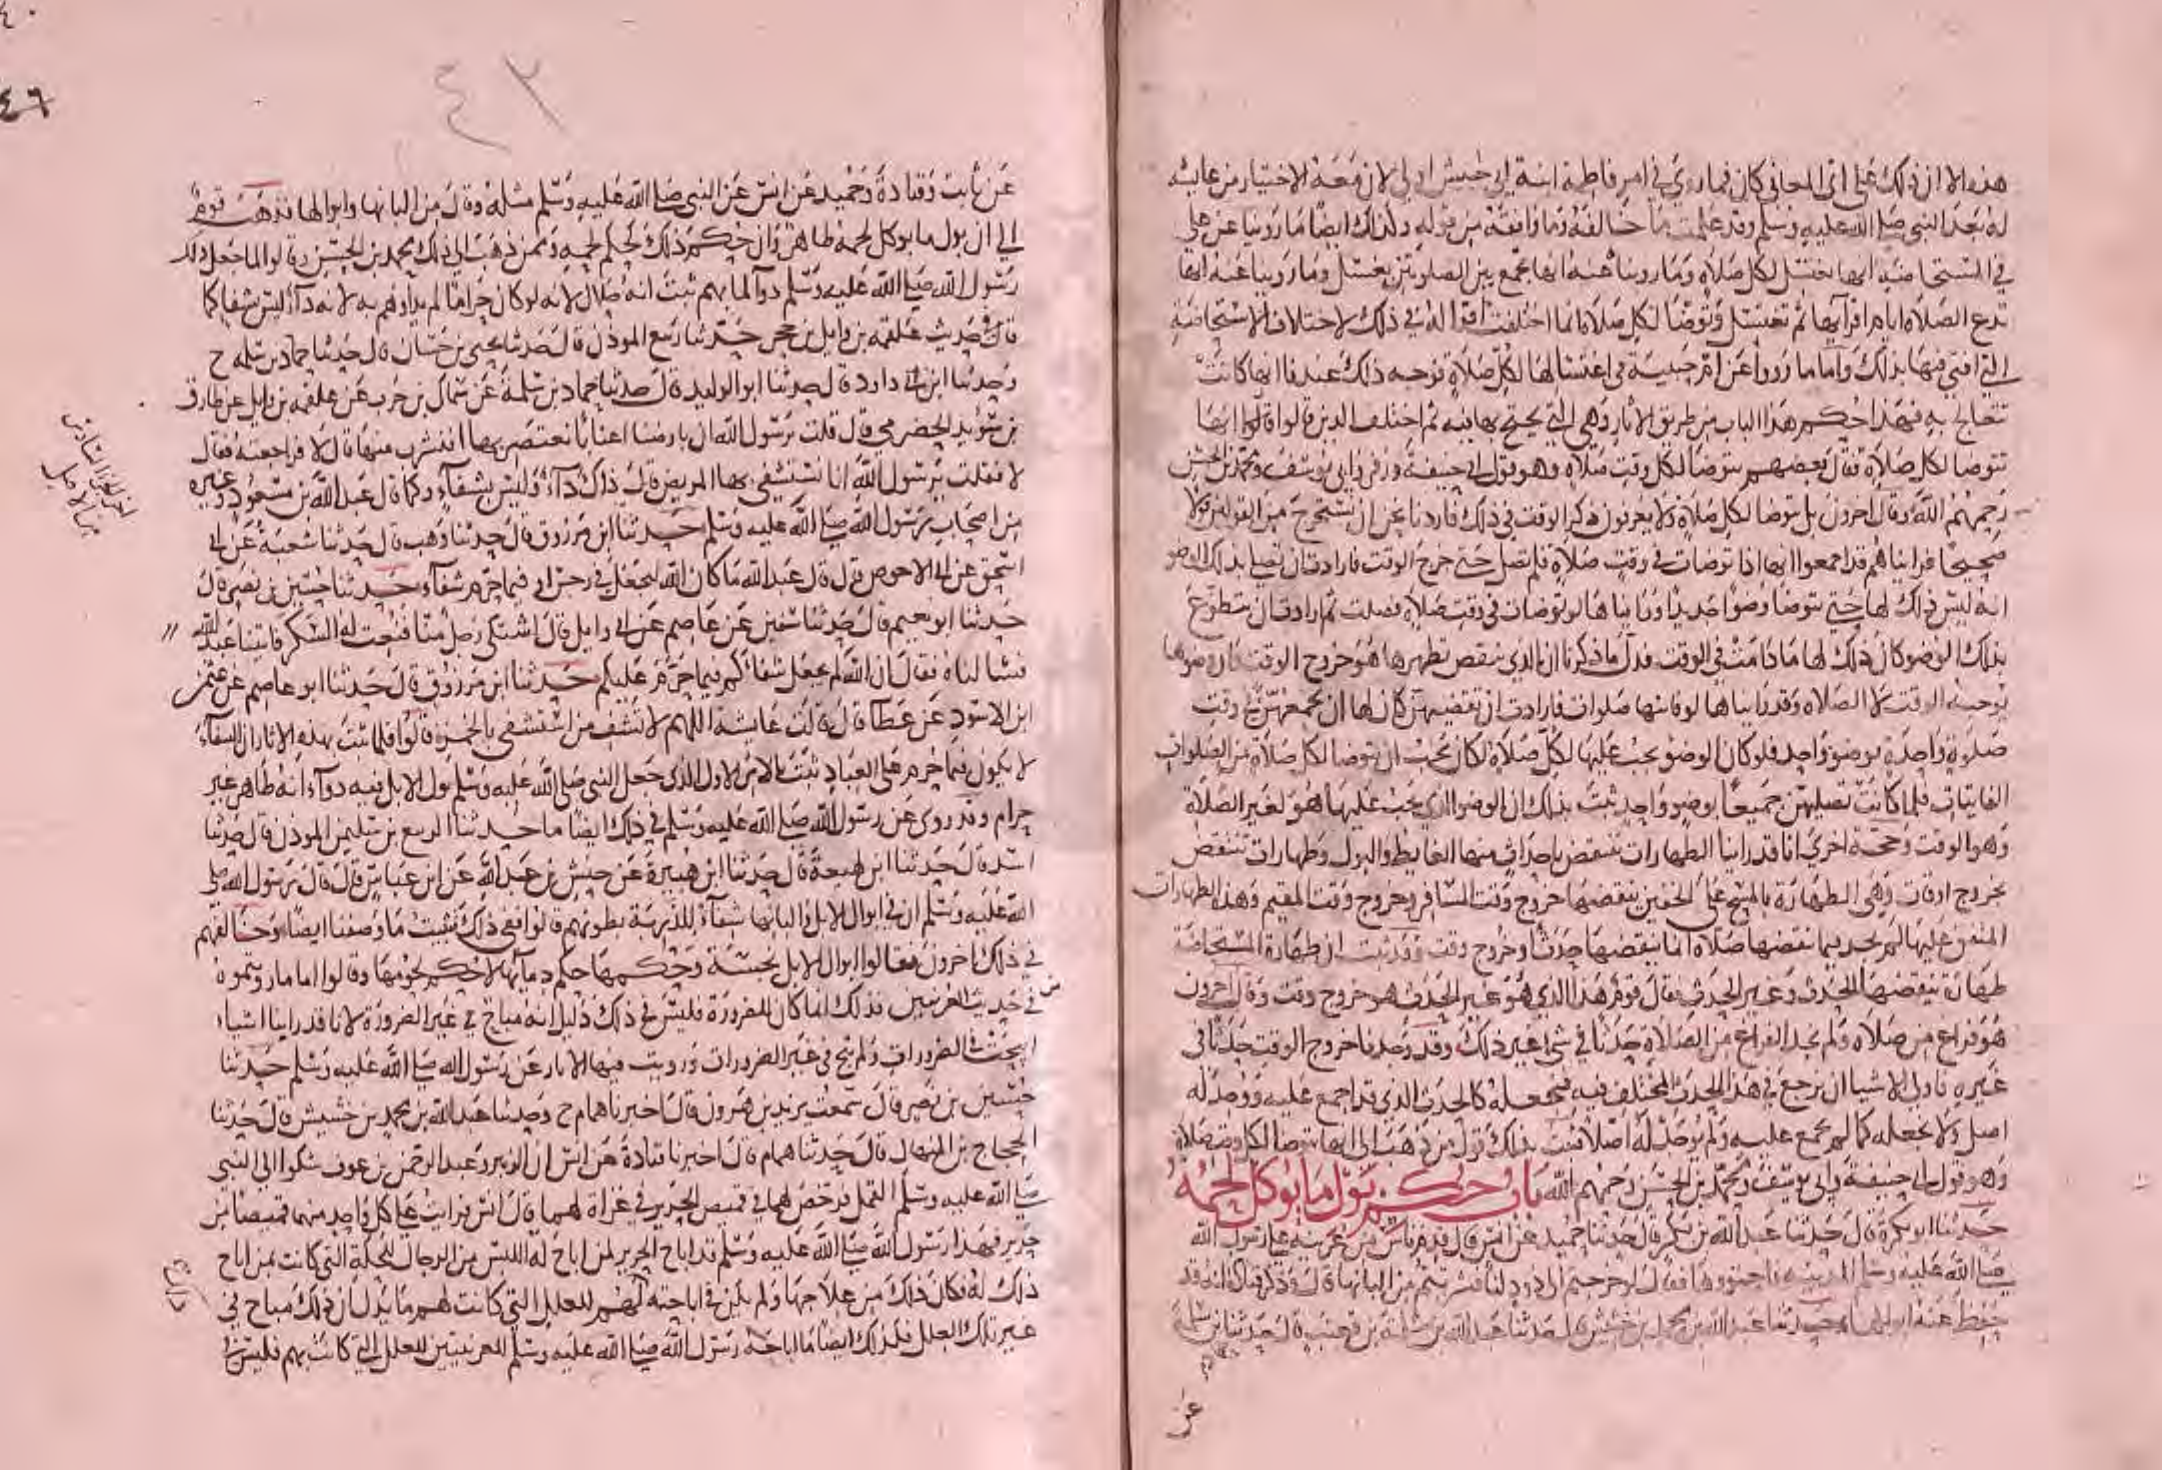 هذه الا ان ذلك على اى المعانى كان فما روى فى امر فاطمة ابنة ابى حبيش اولى لان معه الاختيار من عائشة
له بعد النبى صلى الله عليه وسلم وقد علمت ما خالفه وما وافقه من قوله وكذلك ايضا ما روينا عن على
فى المستحاضة انها تغتسل لكل صلاة وما روينا عنه انها تجمع بين الصلوتين بغسل وما روينا عنه انها
تدع الصلاة ايام اقرائها ثم تغتسل وتتوضا لكل صلاة انما اختلفت اقواله فى ذلك لاختلاف الاستحاضة
التى افتى فيها بذلك واما ما رووا عن ام حبيبة فى اغتسالها لكل صلاة فوجه ذلك عندنا انها كانت
تتعالج به فهذا حكم هذا الباب من طريق الاثار وهى التى يحتج بها فيه ثم اختلف الذين قالوا انها
تتوضا لكل صلاة فقال بعضهم تتوضا لكل وقت صلاة وهو قول ابى حنيفة وزفر وابى يوسف ومحمد بن الحسن
رحمهم الله وقال اخرون بل تتوضا لكل صلاة ولا يعرفون ذكر الوقت فى ذلك فاردنا نحن ان نستخرج من القولين قولا
صحيحا فراينا هم قد اجمعوا انها اذا توضات فى وقت صلاة فلم تصل حتى خرج الوقت فارادت ان تصلى بذلك الوضو
انه ليس ذلك لها حتى تتوضا وضوا جديدا وراينا ها لو توضات فى وقت صلاة فصلت ثم ارادت ان تتطوع
بذلك الوضو كان ذلك لها ما دامت فى الوقت فدل ما ذكرنا ان الذى ينقض تطهيرها هو خروج الوقت وان وضوها
يوجبه الوقت لا الصلاه وقد رايناها لو فاتتها صلوات فارادت ان تقضيهن كان لها ان تجمعهن فى وقت
صلوة واحدة بوضو واحد فلو كان الوضو يجب عليها لكل صلاة لكان يجب ان تتوضا لكل صلاة من الصلوات
الفايتات فلما كانت تصليهن جميعا بوضو واحد ثبت بذلك ان الوضو الذى يجب عليها هو لغير الصلاة
وهو الوقت وحجة اخرى انا قد راينا الطهارات تنتقض باحداث منها الغايط والبول وطهارات تنتقض
بخروج اوقات وهى الطهارة بالمسح على الخفين ينقضها خروج وقت المسافر وخروج وقت المقيم وهذه الطهارات
المتفق عليها لم نجد فيما ينقضها صلاة انما ينقضها حدث او خروج وقت وقد ثبت ان طهارة المستحاضة
طهارة ينقضها الحدث وغير الحدث فقال قوم هذا الذى هو غير الحدث هو خروج وقت وقال اخرون
هو فراغ من صلاة ولم نجد الفراغ من الصلاة حدثا فى شى غير ذلك وقد وجدنا خروج الوقت حدثا فى
غيره فاولى الاشيا ان نرجع فى هذا الحدث المختلف فيه فنجعله كالحدث الذى قد اجمع عليه ووجد له
اصل ولا نجعله كما لم يجمع عليه ولم يوجد له اصلا فثبت بذلك قول من ذهب الى انها تتوضا لكل وقت صلاة
وهو قول ابى حنيفة وابى يوسف ومحمد بن الحسن رحمهم الله باب حكم بول ما يوكل لحمه
حدثنا ابو بكرة قال حدثنا عبد الله بن بكر قال حدثنا حميد عن انس قال قدم ناس من عرينة على رسول الله
صلى الله عليه وسلم المدينه فاجتووها فقال لو خرجتم الى ذود لنا فشربتم من البانها قال وذكر قتادة انه قد
حفظ عنه ابوالها حدثنا عبد الله بن محمد بن خشيش قال حدثنا عبد الله بن مسلمة بن قعنب قال حدثنا بن سلمة
عن
٤٢
٤٦
عن ثابت وقتادة وحميد عن انس عن النبى صلى الله عليه وسلم مثله وقال من البانها وابوالها فذهب قوم
الى ان بول ما يوكل لحمه طاهر وان حكم ذلك كحكم لحمه وممن ذهب الى ذلك محمد بن الحسن وقالوا لما جعل ذلك
رسول الله صلى الله عليه وسلم دوآ لما بهم ثبت انه حلال لانه لو كان حراما لم يداوهم به لانه دآء ليس شفا كما
قال فى حديث علقمه بن وايل بن حجر حدثنا ربيع الموذن قال حدثنا يحيى بن حسان قال حدثنا حماد بن سلمه ح
وحدثنا ابن ابى داود قال حدثنا ابو الوليد قال حدثنا حماد بن سلمة عن سماك بن حرب عن علقمه بن وايل عن طارق
بن سويد الحضرمى قال قلت يرسول الله ان بارضنا اعنابا نعتصر بها افنشرب منها قال لا فراجعته فقال
لا فقلت يرسول الله انا نستشفى بها المريض قال ذاك دآء وليس بشفآء وكما قال عبد الله بن مسعود وغيره
من اصحاب رسول الله صلى الله عليه وسلم حدثنا ابن مرزوق قال حدثنا وهب قال حدثنا شعبة عن ابى
اسحق عن ابى الاحوص قال قال عبد الله ما كان الله ليجعل فى رجس او فيما حرم شفآء حدثنا حسين بن نصر قال
حدثنا ابو نعيم قال حدثنا سفين عن عاصم عن ابى وايل قال اشتكى رجل منا فنعت له السكر فاتينا عبد الله
فسالناه فقال ان الله لم يجعل شفاكم فيما حرم عليكم حدثنا ابن مرزوق قال حدثنا ابو عاصم عن عثمن
ابن الاسود عن عطآ قال قالت عايشة اللهم لا تشف من استشفى بالخمر قالوا فلما ثبت بهذه الاثار ان الشفآء
لا يكون فيما حرم على العباد ثبت بالاثر الاول الذى جعل النبى صلى الله عليه وسلم بول الابل فيه دوآء انه طاهر غير
حرام وقد روى عن رسول الله صلى الله عليه وسلم فى ذلك ايضا ما حدثنا الربيع بن سليمن الموذن قال حدثنا
اسد قال حدثنا ابن لهيعة قال حدثنا ابن هبيرة عن حنش بن عبد الله عن ابن عباس قال قال رسول الله صلى
الله عليه وسلم ان فى ابوال الابل والبانها شفآء للذربة بطونهم قالوا ففى ذلك تثبيت ما وصفنا ايضا وخالفهم
فى ذلك اخرون فقالوا ابوال الابل نجسة وحكمها حكم دمائها لا حكم لحومها وقالوا اما ما رويتموه
فى حديث العرنيين فذلك انما كان للضرورة فليس فى ذلك دليل انه مباح فى غير الضرورة لانا قد راينا اشياء
ابيحت فى الضرورات ولم تبح فى غير الضرورات ورويت فيها الاثار عن رسول الله صلى الله عليه وسلم حدثنا
حسين بن نصر قال سمعت يزيد بن هرون قال اخبرنا همام ح وحدثنا عبد الله بن محمد بن خشيش قال حدثنا
الحجاج بن المنهال قال حدثنا همام قال اخبرنا قتادة عن انس ان الزبير وعبد الرحمن بن عوف شكوا الى النبى
صلى الله عليه وسلم القمل فرخص لهما فى قميص الحرير فى غزاة لهما قال انس فرايت على كل واحد منهما قميصا من
حرير فهذا رسول الله صلى الله عليه وسلم قد اباح الحرير لمن اباح له اللبس من الرجال للحكة التى كانت بمن اباح
ذلك له فكان ذلك من علاجها ولم يكن فى اباحته لهم للعلل التى كانت لهم ما يدل ان ذلك مباح فى
غير تلك العلل فكذلك ايضا ما اباحه رسول الله صلى الله عليه وسلم للعرنيين للعلل التى كانت بهم فليس فى